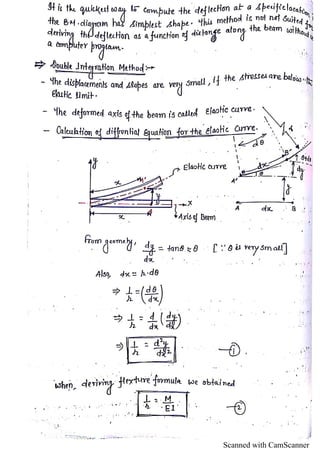 It is the quickest way to compute the deflection at a specific location, if
the BM-diagram has simplest shape. This method is not not suited for
deriving the deflection as a function of distance along the beam without
a computer program.
⇒ Double Integration Method:→
- The displacements and slopes are very small, if the stresses are below
Elastic limit.
- The deformed axis of the beam is called Elastic curve.
- Calculation of diffrntial Equation for the Elastic Curve.
dθ
y
Elastic curve
x
y
x
x
Axis of Beam
A'
dx
dy
y
A dx B
From geometry, dy/dx = tanθ ≈ θ [∵ θ is very small]
Also, dx = r·dθ
⇒ 1/r = (dθ/dx)
⇒ 1/r = d/dx (dy/dx)
⇒ 1/r = d²y/dx² — ①
When, deriving flexture formula we obtained
1/r = M/EI — ②
Scanned with CamScanner